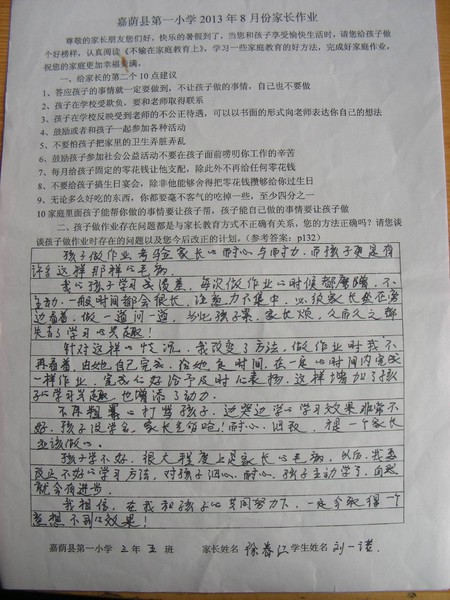 嘉荫县第一小学 2013 年 8 月份家长作业
尊敬的家长朋友您们好，快乐的暑假到了，当您和孩子享受愉快生活时，请您给孩子做
个好榜样，认真阅读《不输在家庭教育上》，学习一些家庭教育的好方法，完成好家庭作业，
祝您的家庭更加幸福美满。
一、给家长的第二个 10 点建议
1、答应孩子的事情就一定要做到，不让孩子做的事情，自己也不要做
2、孩子在学校受欺负，要和老师取得联系
3、孩子在学校反映受到老师的不公正待遇，可以以书面的形式向老师表达你自己的想法
4、鼓励或者和孩子一起参加各种活动
5、不要怕孩子把家里的卫生弄脏弄乱
6、鼓励孩子参加社会公益活动不要在孩子面前唠叨你工作的辛苦
7、每月给孩子固定的零花钱让他支配，除此外不再给任何零花钱
8、不要给孩子搞生日宴会，除非他能够舍得把零花钱攒够给你过生日
9、无论多么好吃的东西，你都要毫不客气的吃掉一些，至少四分之一
10 家庭里面孩子能帮你做的事情要让孩子帮，孩子能自己做的事情要让孩子做
二、孩子做作业存在问题都是与家长教育方式不正确有关系，您的方法正确吗？请您谈
谈孩子做作业时存在的问题以及您今后改正的计划。（参考答案：p132）
孩子做作业，考验家长心耐心与耐力，而孩子更是有
许多这样那样心毛病。
我心孩子学习成绩差，每次做作业心时候都磨蹭，不
主动，一般时间都会很长，注意力不集中，必须家长坐在旁
边看着，做一道问一道，当此孩子累，家长烦，久而久之都
失去了学习心兴趣！
针对这样心情况，我改变了方法，做作业时我不
再看着，由她自己完成，给她定时间，在一定心时间内完成
一样作业，完成心好给予及时心表扬，这样增加了孩
子心学习兴趣，也增添了动力。
不再粗暴心打骂孩子，边哭边学心学习效果非常不
好，孩子没学会，家长先伤啦！耐心，细致，才是一个家长
应该做心。
孩子学不好，很大程度上是家长心毛病，以后，我要
改正不好心学习方法，对孩子细心，耐心，孩子主动学了，自然
就会有进步。
我相信，在我和孩子心共同努力下，一定会取得一个
意想不到心效果！
嘉荫县第一小学 三 年 五 班 家长姓名 徐春江 学生姓名 刘一诺